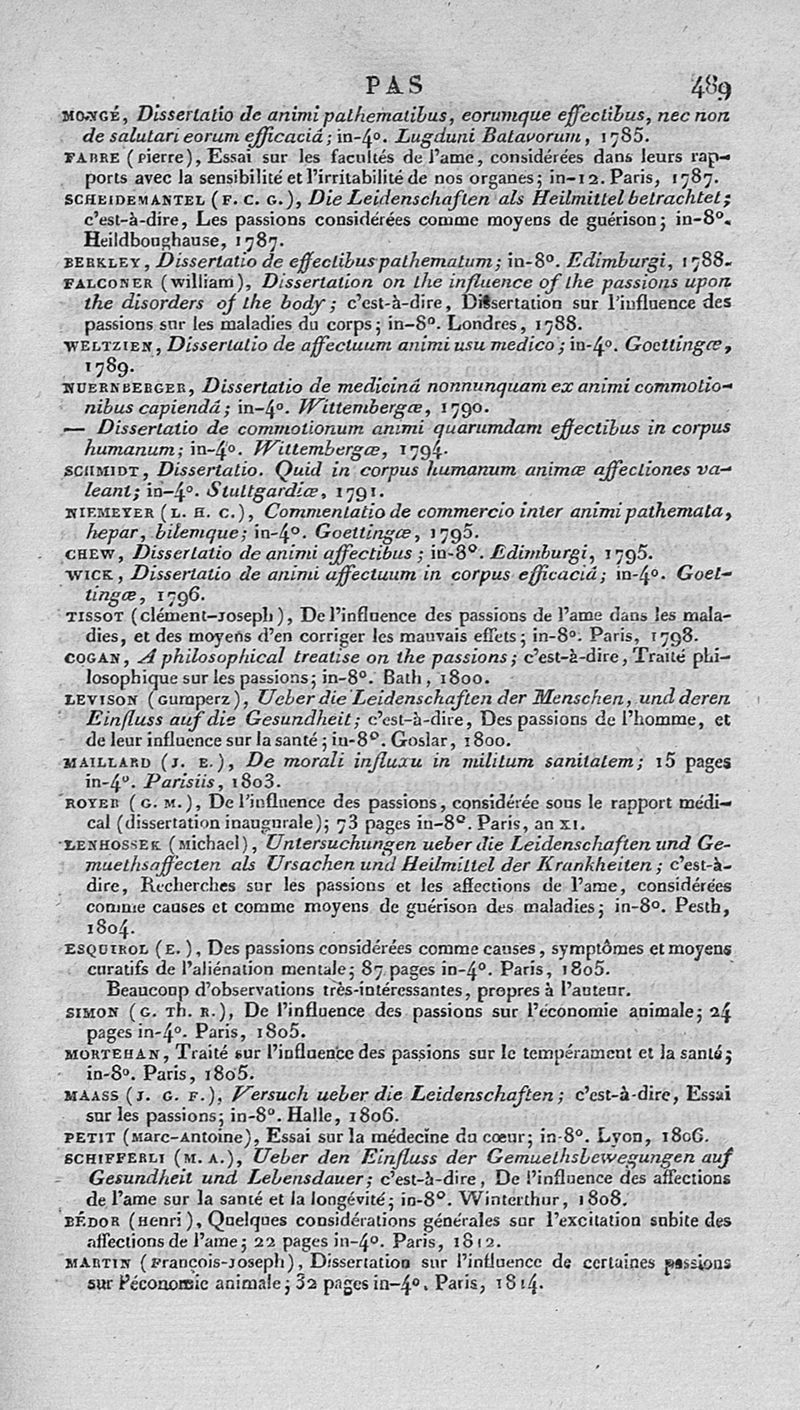 PAS 489
MONGÉ, Dissertatio de animi pathematibus, eorumque effectibus, nec non
de salutari eorum efficaciâ; in-4°. Lugduni Batavorum, 1785.
FABRE (Pierre), Essai sur les facultés de l'ame, considérées dans leurs rap-
ports avec la sensibilité et l'irritabilité de nos organes; in-12. Paris, 1787.
SCHEIDEMANTEL (F. C. G.), Die Leidenschaften als Heilmittel betrachtet;
c'est-à-dire, Les passions considérées comme moyens de guérison; in-8°.
Heildboughause, 1787.
BERKLEY, Dissertatio de effectibus pathematum; in-8°. Edimburgi, 1788.
FALCONER (william), Dissertation on the influence of the passions upon
the disorders of the body; c'est-à-dire, Dissertation sur l'influence des
passions sur les maladies du corps; in-8°. Londres, 1788.
WELTZIEN, Dissertatio de affectuum animi usu medico; in-4°. Goettingæ,
1789.
NUERNBERGER, Dissertatio de medicinâ nonnunquam ex animi commotio-
nibus capiendâ; in-4°. Wittembergæ, 1790.
— Dissertatio de commotionum animi quarumdam effectibus in corpus
humanum; in-4°. Wittembergæ, 1794.
SCHMIDT, Dissertatio. Quid in corpus humanum animæ affectiones va-
leant; in-4°. Stuttgardiæ, 1791.
NIEMEYER (L. H. C.), Commentatio de commercio inter animi pathemata,
hepar, bilemque; in-4°. Goettingæ, 1795.
CHEW, Dissertatio de animi affectibus; in-8°. Edimburgi, 1795.
WICK, Dissertatio de animi affectuum in corpus efficaciâ; in-4°. Goet-
tingæ, 1796.
TISSOT (clément-Joseph), De l'influence des passions de l'ame dans les mala-
dies, et des moyens d'en corriger les mauvais effets; in-8°. Paris, 1798.
COGAN, A philosophical treatise on the passions; c'est-à-dire, Traité phi-
losophique sur les passions; in-8°. Bath, 1800.
LEVISON (Gumperz), Ueber die Leidenschaften der Menschen, und deren
Einfluss auf die Gesundheit; c'est-à-dire, Des passions de l'homme, et
de leur influence sur la santé; in-8°. Goslar, 1800.
MAILLARD (J. E.), De morali influxu in militum sanitatem; 15 pages
in-4°. Parisiis, 1803.
ROYER (G. M.), De l'influence des passions, considérée sous le rapport médi-
cal (dissertation inaugurale); 73 pages in-8°. Paris, an XI.
LENHOSSEK (Michael), Untersuchungen ueber die Leidenschaften und Ge-
muethsaffecten als Ursachen und Heilmittel der Krankheiten; c'est-à-
dire, Recherches sur les passions et les affections de l'ame, considérées
comme causes et comme moyens de guérison des maladies; in-8°. Pesth,
1804.
ESQUIROL (E.), Des passions considérées comme causes, symptômes et moyens
curatifs de l'aliénation mentale; 87 pages in-4°. Paris, 1805.
Beaucoup d'observations très-intéressantes, propres à l'auteur.
SIMON (G. Th. R.), De l'influence des passions sur l'économie animale; 24
pages in-4°. Paris, 1805.
MORTEHAN, Traité sur l'influence des passions sur le tempérament et la santé;
in-8°. Paris, 1805.
MAASS (J. G. F.), Versuch ueber die Leidenschaften; c'est-à-dire, Essai
sur les passions; in-8°. Halle, 1806.
PETIT (Marc-Antoine), Essai sur la médecine du cœur; in-8°. Lyon, 1806.
SCHIFFERLI (M. A.), Ueber den Einfluss der Gemuethsbewegungen auf
Gesundheit und Lebensdauer; c'est-à-dire, De l'influence des affections
de l'ame sur la santé et la longévité; in-8°. Winterthur, 1808.
BÉDOR (Henri), Quelques considérations générales sur l'excitation subite des
affections de l'ame; 22 pages in-4°. Paris, 1812.
MARTIN (François-Joseph), Dissertation sur l'influence de certaines passions
sur l'économie animale; 32 pages in-4°. Paris, 1814.